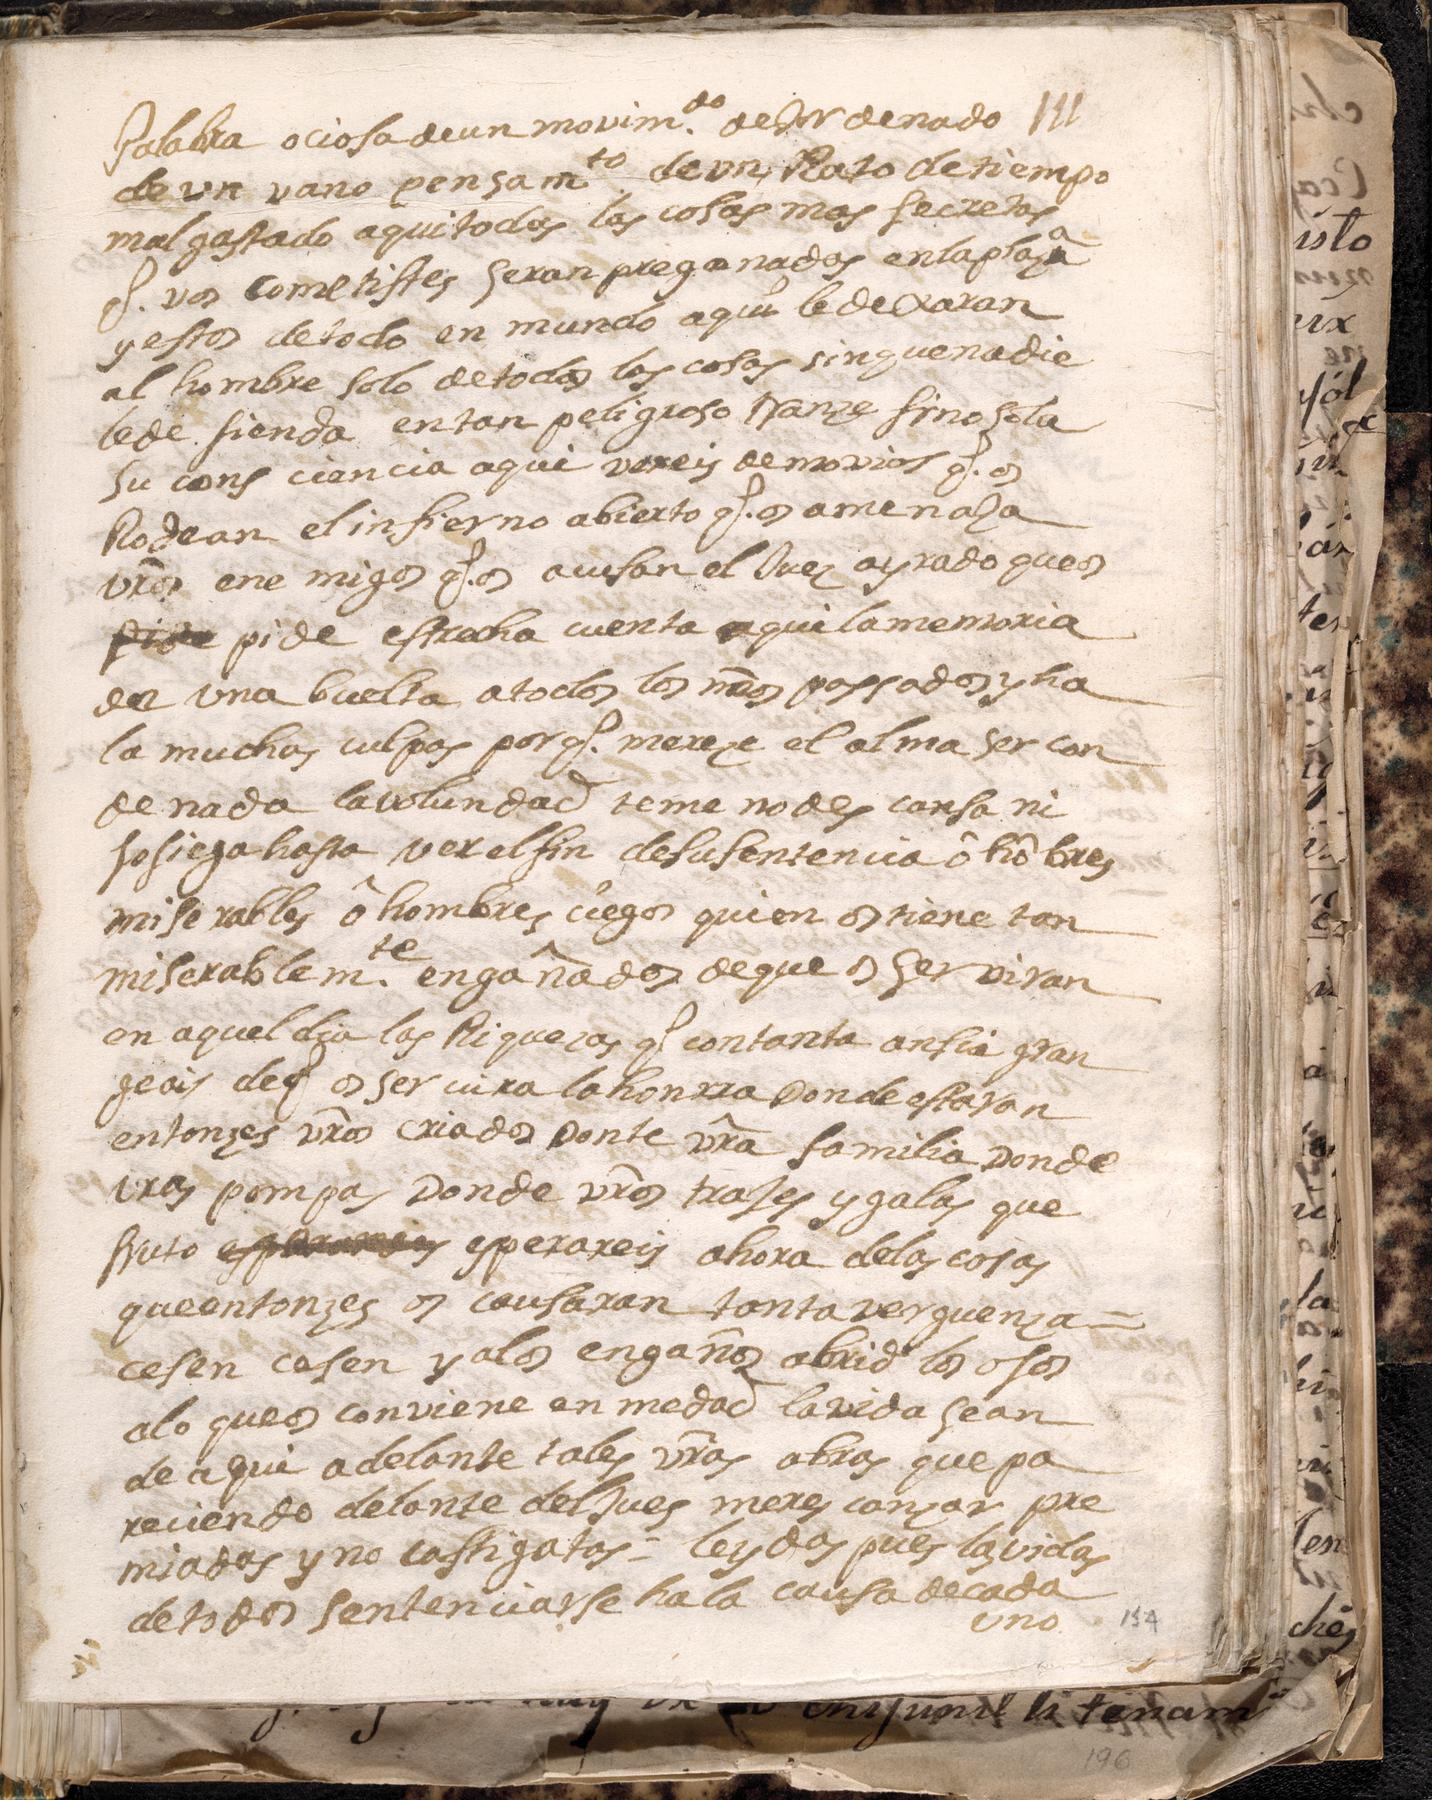 Palabra ociosa de un movim.do desor denado 111
de vn vano pensamto. de vn Rato de tiempo
mal gastado aqui todas las cosas mas secretas
q. vos cometistes seran pregonadas en la plaza
y estos de todo en mundo aqui le dexaran
al hombre solo de todas las cosas sin que nadie
le de fienda en tan peligroso tranze sino sola
su cons ciencia aqui vereis demovios q. os
Rodean el infierno abierto q. os amenaza
vros ene migos q. os acusan el Juez ayrado que os
pide estrecha cuenta aqui la memoria
da una buelta a todos los años passados y ha
la muchas culpas por q. mereze el alma ser con
de nada la volundad teme no des cansa ni
sosiega hasta ver el fin de su sentencia ô hôbres
mise rables ô hombres ciegos quien os tiene tan
miserablem.te engañados de que os ser viran
en aquel dia las Riquezas q con tanta ansia gran
geais de q os ser vira la honrra Donde estaran
entonzes vros criados Donte vra familia Donde
vras pompas Donde vros trajes y galas que
fruto esperareis ahora de las cosas
que entonzes os causaran tanta verguenza =
cesen cesen y alos engaños abrid los ojos
alo que os conviene en medad la vida sean
de aqui adelante tales vras obras que pa
reciendo delante del Jues meres canzar pre
miadas y no castigatas = leydas pues las vidas
de todos sentenciarse ha la causa de cada
uno 154
196